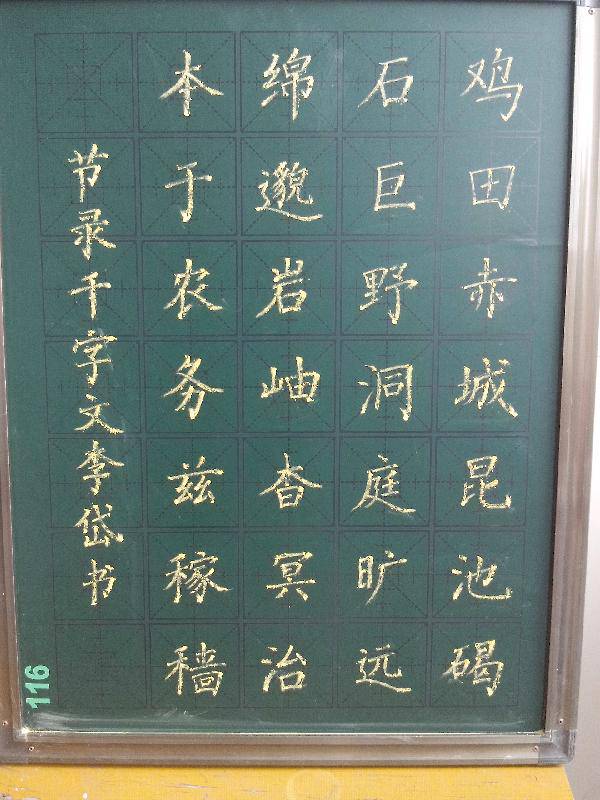 鸡田赤城昆池碣
石巨野洞庭旷远
绵邈岩岫杳冥治
本于农务兹稼穑
节录千字文李岱书
116